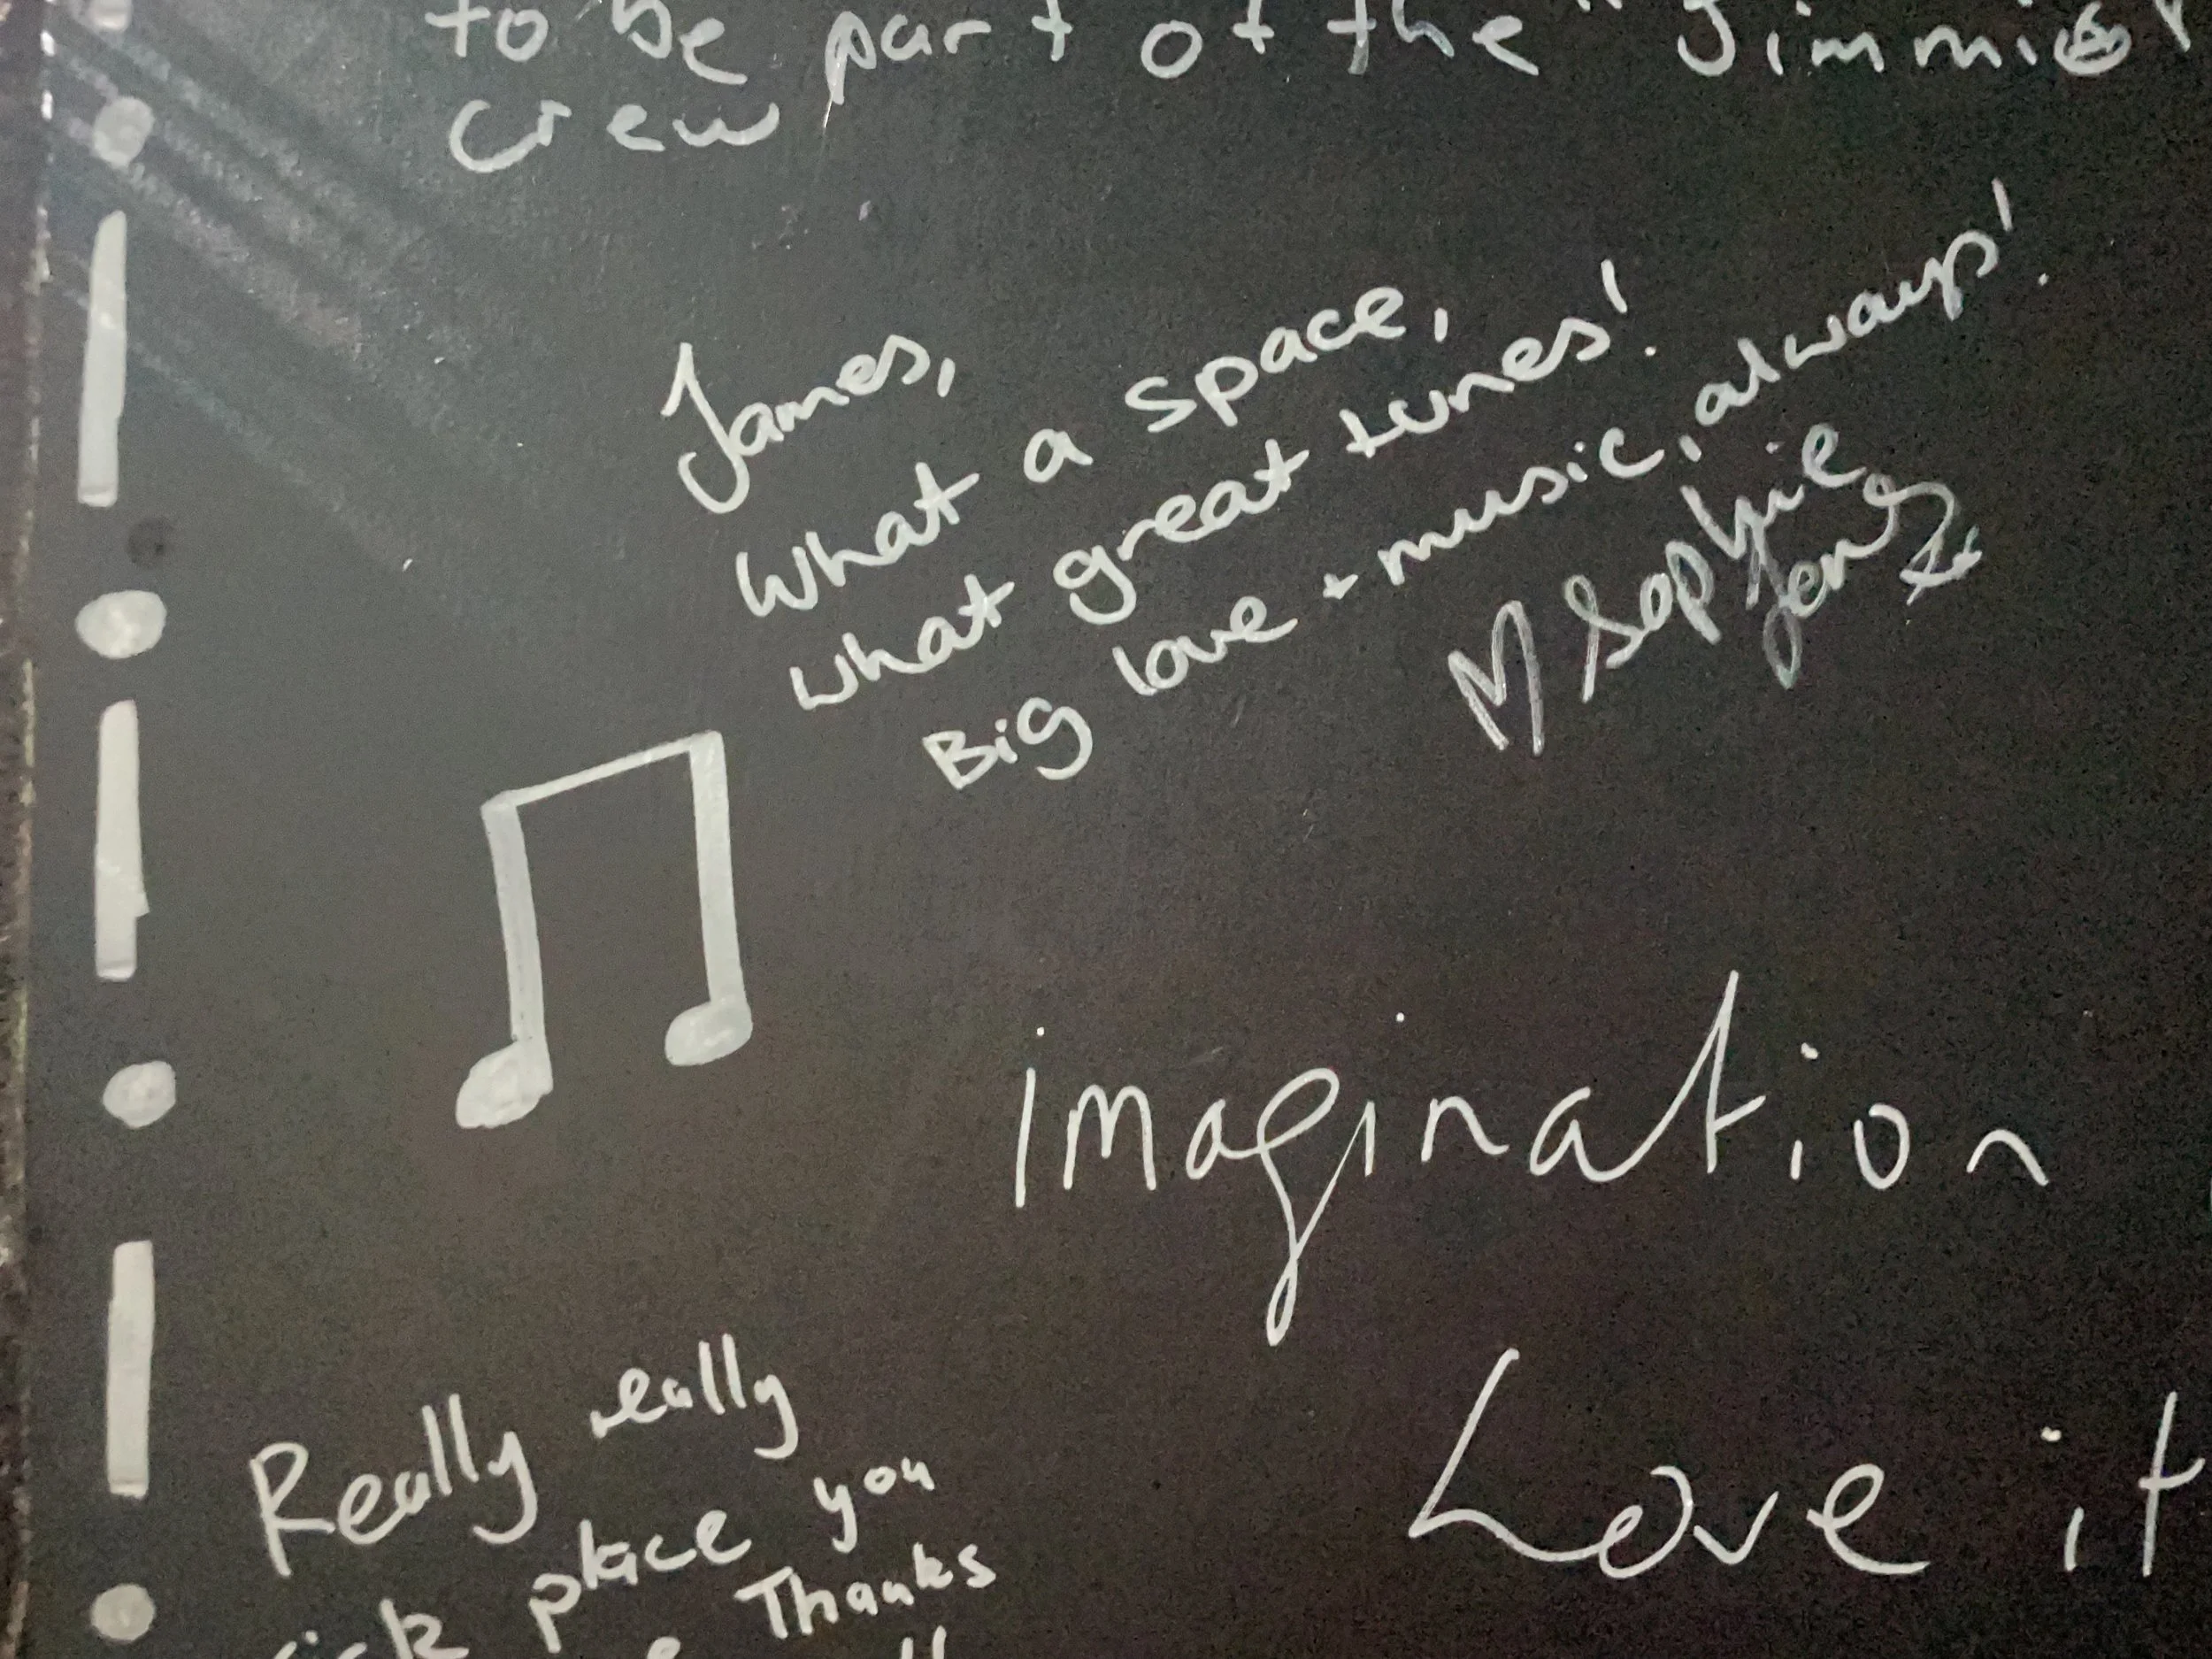 to be part of the "Jimmies"
crew
James,
What a space,
what great tunes!
Big love + music, always!
Sophie
imagination
Love it
Really really
sick place you
Thanks